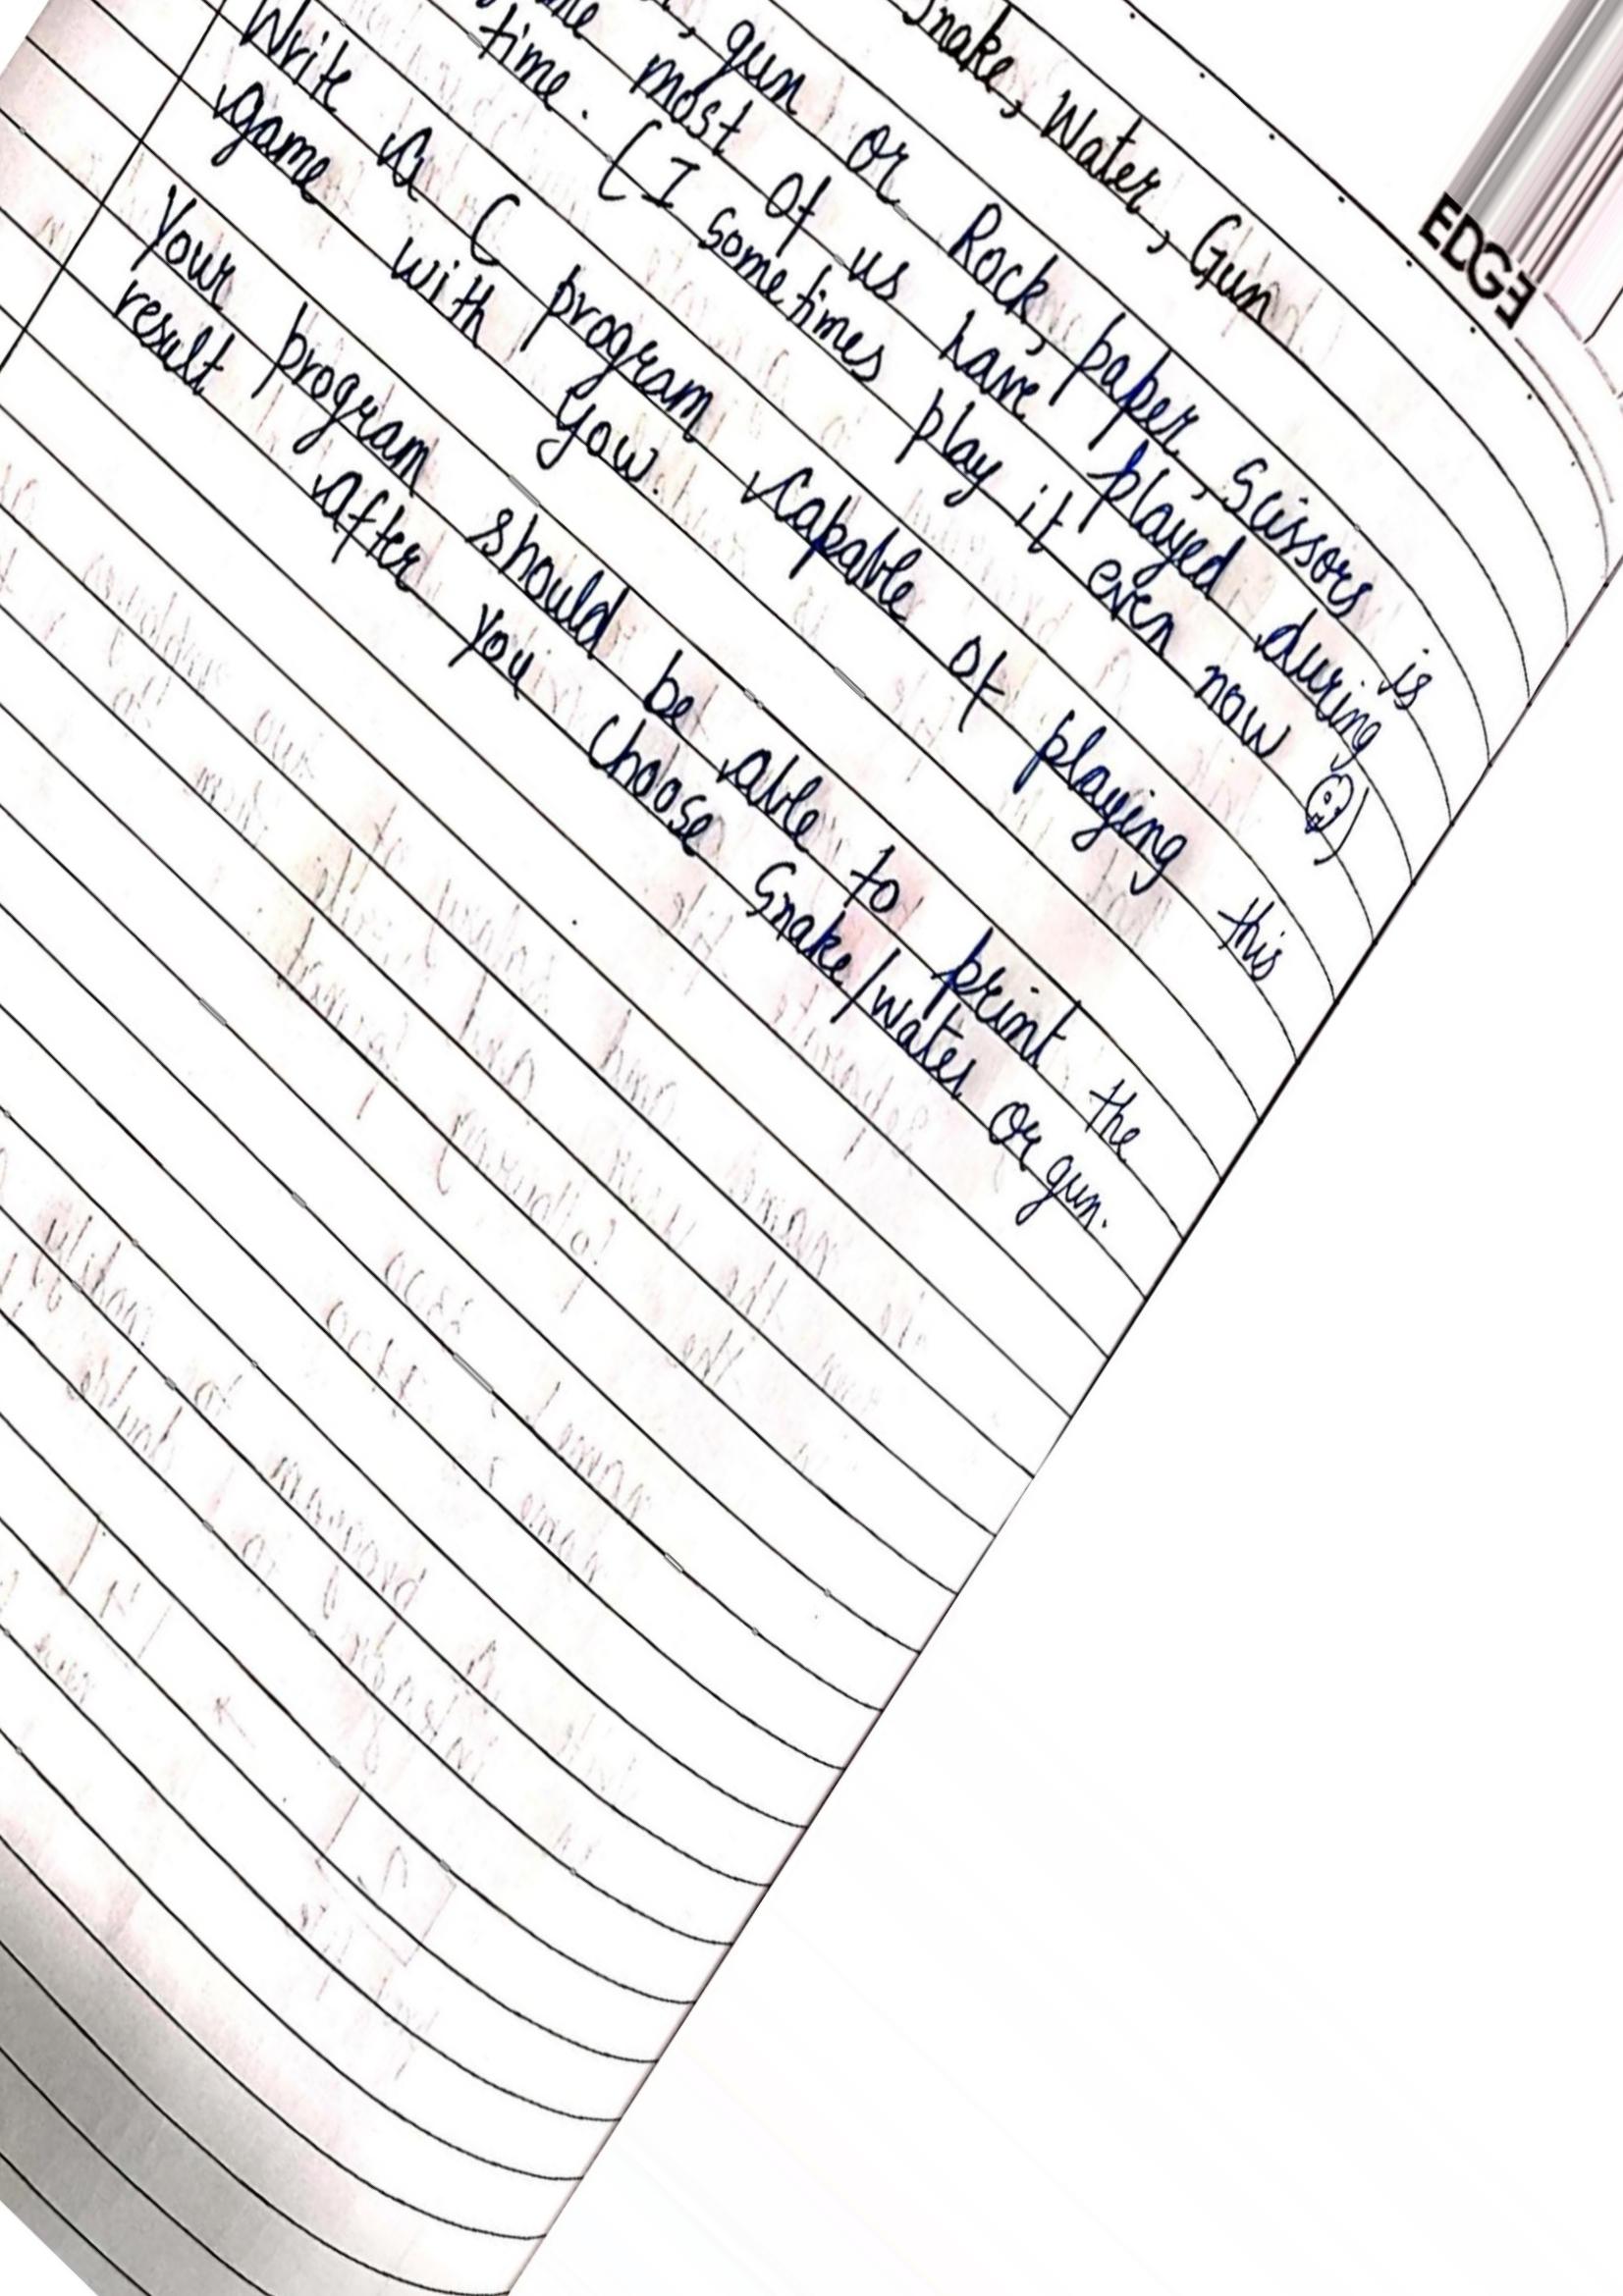 Snake, Water, Gun
, gun or Rock, paper, Scissors is
most of us have played during
time. (I sometimes play it even now
Write a C program capable of playing this
game with you.
Your program should be able to print the
result after you choose Snake/water or gun.
EDGE